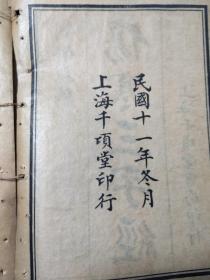 民國十一年冬月
上海千項堂印行